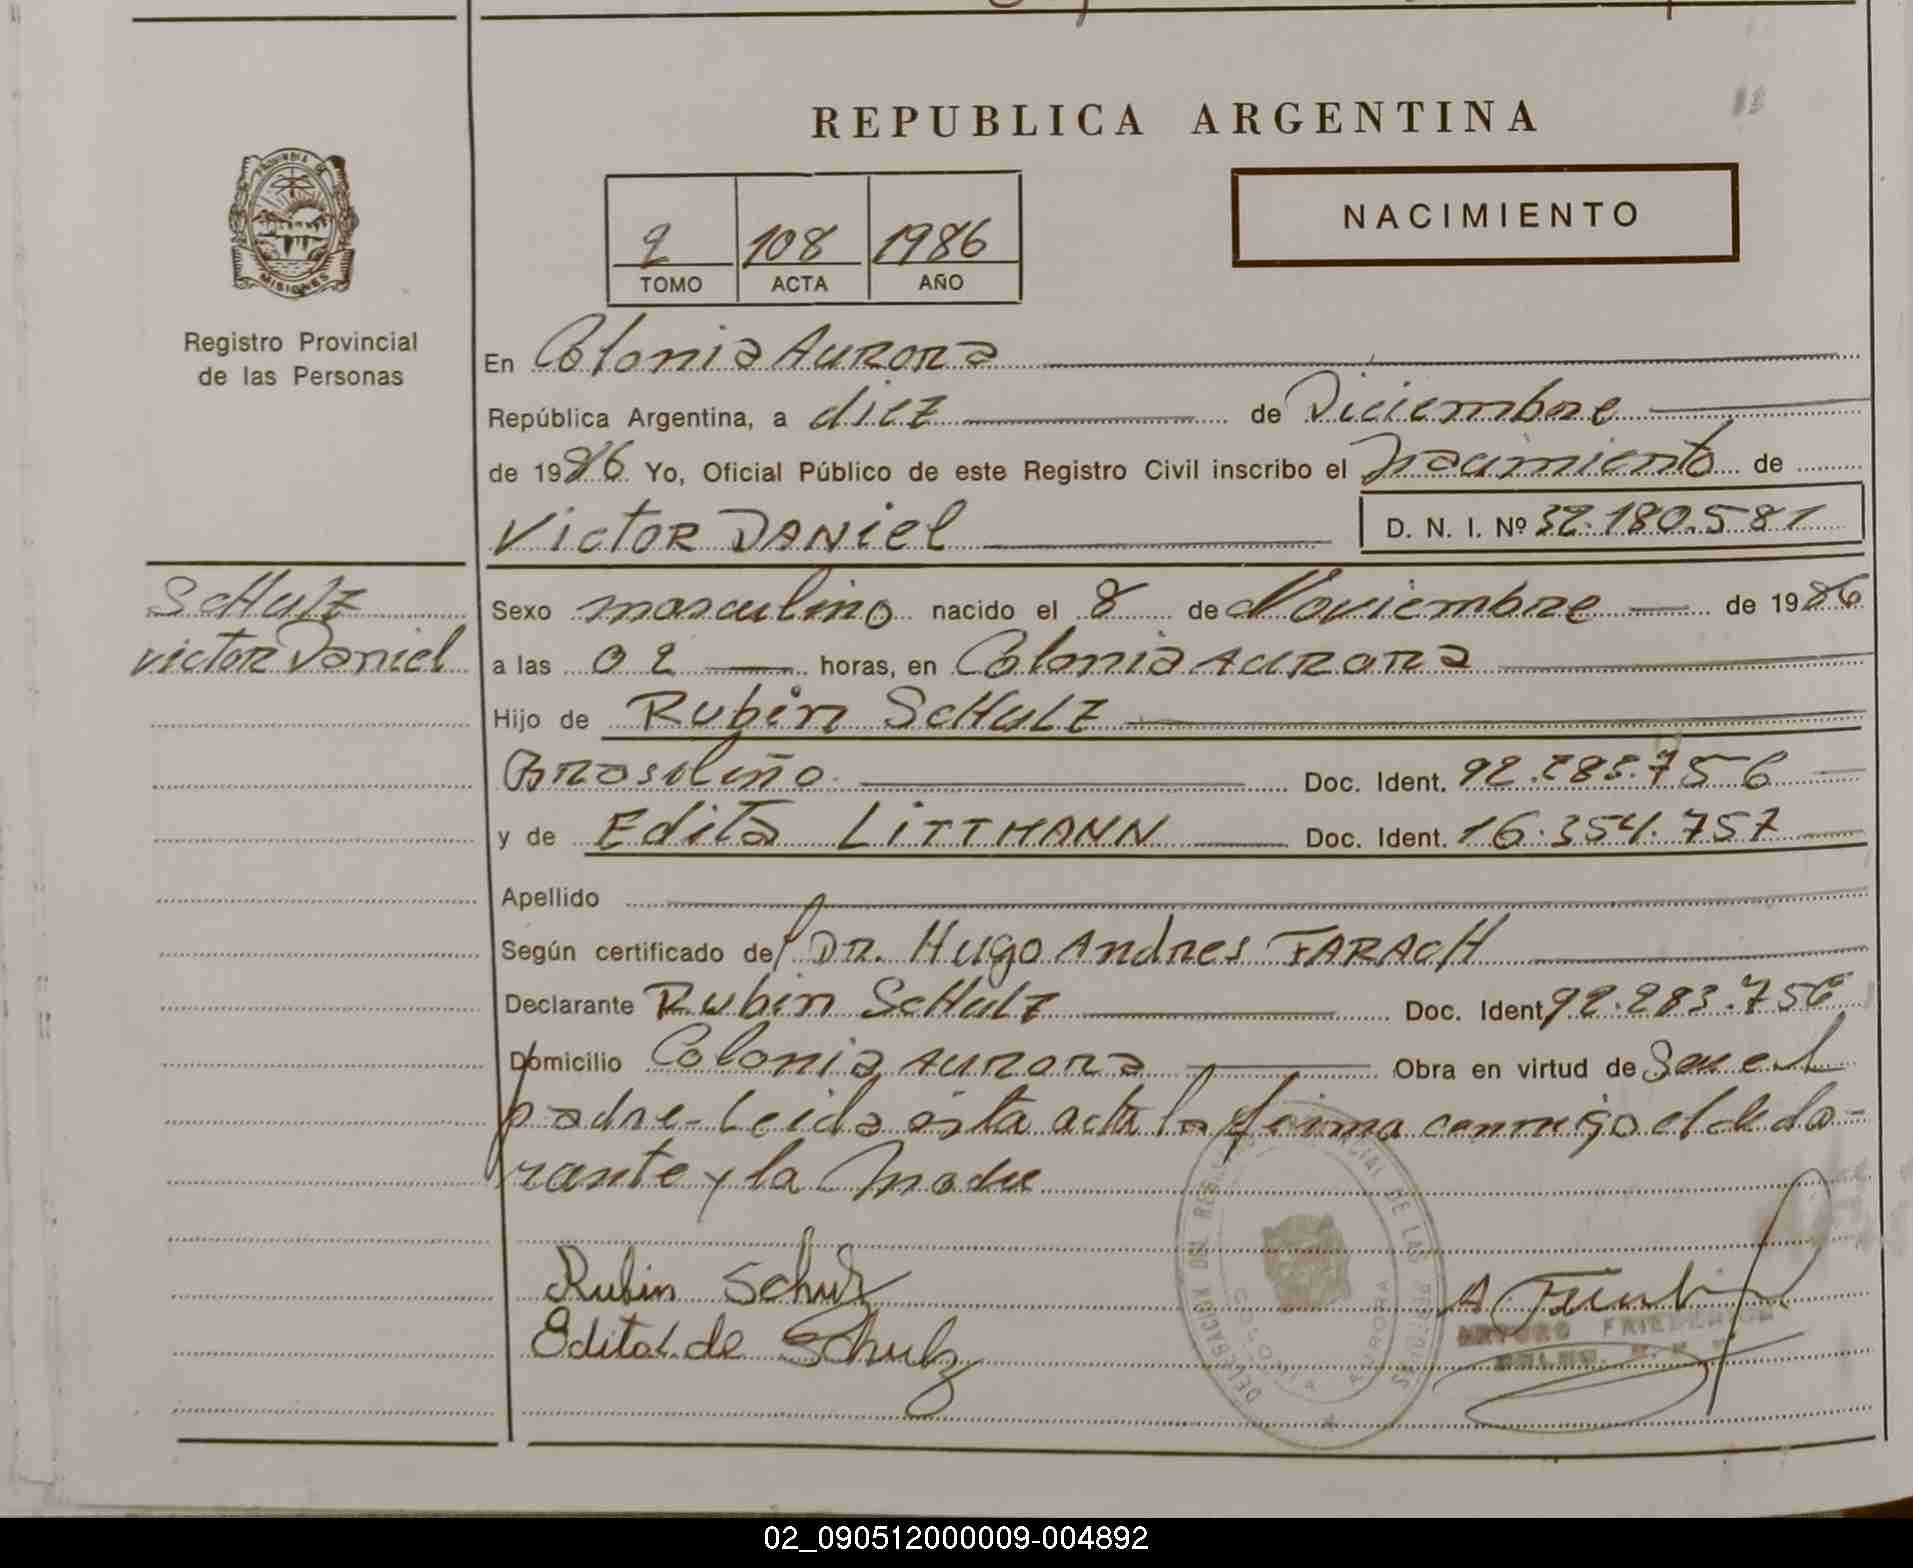 REPUBLICA ARGENTINA
NACIMIENTO
2 108 1986
TOMO ACTA AÑO
PROVINCIA DE
MISIONES
Registro Provincial
de las Personas
En Colonia Aurora
República Argentina, a diez de Diciembre
de 1986 Yo, Oficial Público de este Registro Civil inscribo el Nacimiento de
VICTOR DANIEL D. N. I. Nº 32.180.581
Schulz
Victor Daniel
Sexo masculino nacido el 8 de Noviembre de 1986
a las 02 horas, en Colonia Aurora
Hijo de Rubin SCHULZ
Brasileño Doc. Ident. 92.283.756
y de Edita LITTMANN Doc. Ident. 16.354.757
Apellido
Según certificado del Dr. Hugo Andres FARACH
Declarante Rubin Schulz Doc. Ident. 92.283.756
Domicilio Colonia Aurora Obra en virtud de Ser el
padre - Leida esta acta la firma conmigo el decla-
rante y la Madre
Rubin Schulz
Edita L. de Schulz
ARTURO FRIEDERICH
DELEGACION DEL REGISTRO PROVINCIAL DE LAS PERSONAS
COLONIA AURORA
02_090512000009-004892